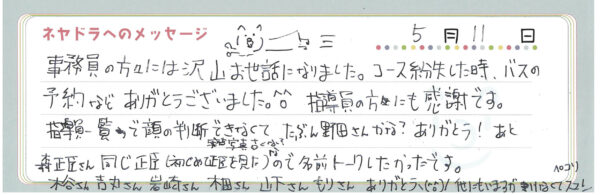 ネヤドラへのメッセージ
5月11日
事務員の方々には沢山お世話になりました。コース紛失した時、バスの
予約などありがとうございました。^^ 指導員の方々にも感謝です。
指導員一覧めで顔の判断できなくて たぶん野田さんかな? ありがとう! あと
森正臣さん 同じ正臣(初めて正臣を見た)ので名前トークしたかったです。
吉丸さん 岩崎さん 木田さん 山下さん もりさん ありがとう